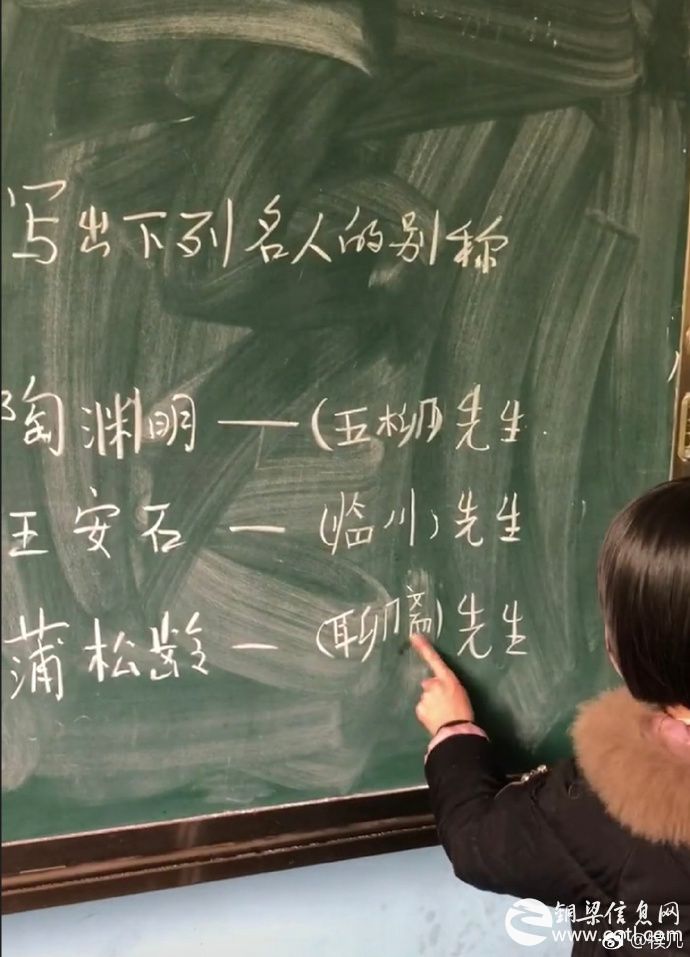 写出下列名人的别称
陶渊明—(五柳)先生
王安石—(临川)先生
蒲松龄—(聊斋)先生
铜梁信息网
www.cqtl.com